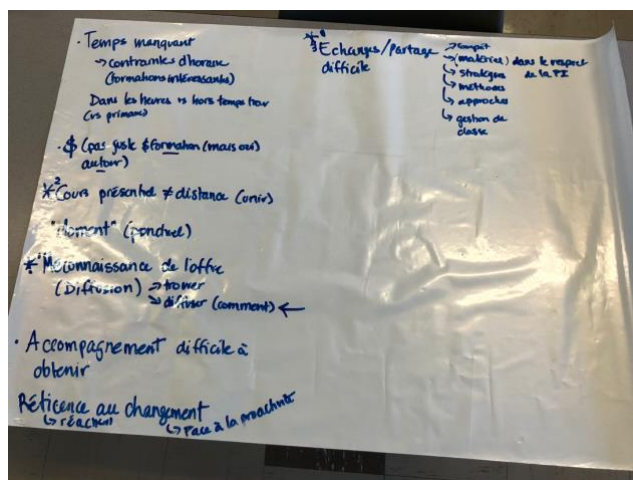 · Temps manquant
→ contraintes d'horaire
(formations intéressantes)
Dans les heures vs hors temps trav
(vs primaire)
· $ (pas juste $ formation (mais oui)
autour)
*2 Cours présentiel ≠ distance (univ)
"Moment" (ponctuel)
*1 Méconnaissance de l'offre
(Diffusion) → trouver
→ diffuser (comment) ←
· Accompagnement difficile à
obtenir
Réticence au changement
↳ réaction
↳ Place à la proactivité
*3 Echanges/Partage
difficile
(matériel) dans le respect
de la PI
↳ stratégies
↳ méthodes
↳ approches
↳ gestion de
classe